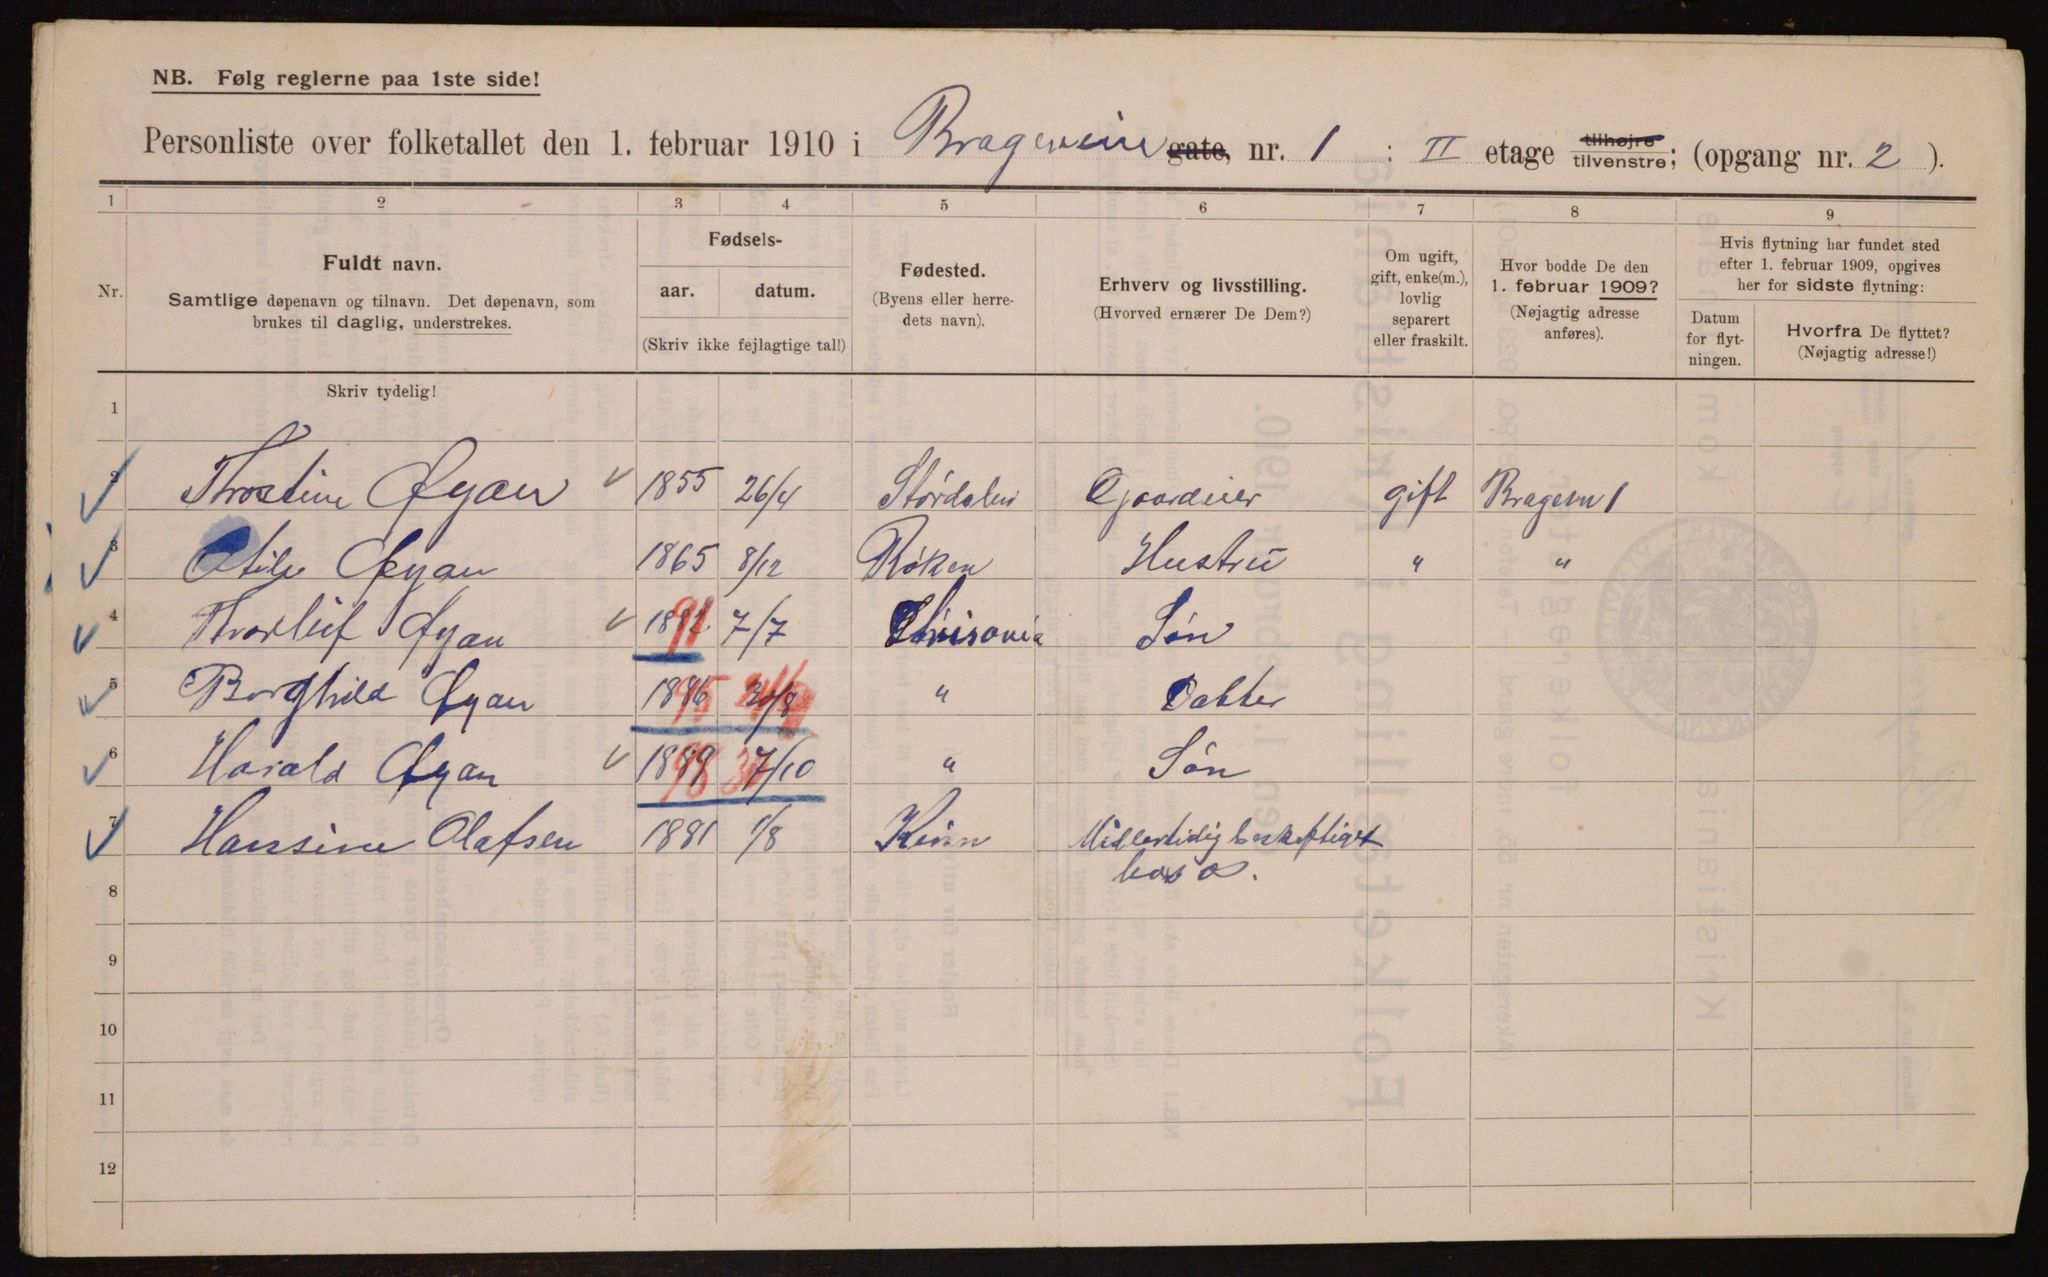 NB. Følg reglerne paa 1ste side!
Personliste over folketallet den 1. februar 1910 i Brageveien gate, nr. 1 : II etage tilhøjre tilvenstre; (opgang nr. 2 ).
1 2 3 4 5 6 7 8 9
Nr.
Fuldt navn.
Samtlige døpenavn og tilnavn. Det døpenavn, som
brukes til daglig, understrekes.
Fødsels-
aar. datum.
(Skriv ikke fejlagtige tal!)
Fødested.
(Byens eller herre-
dets navn).
Erhverv og livsstilling.
(Hvorved ernærer De Dem?)
Om ugift,
gift, enke(m.),
lovlig
separert
eller fraskilt.
Hvor bodde De den
1. februar 1909?
(Nøjagtig adresse
anføres).
Hvis flytning har fundet sted
efter 1. februar 1909, opgives
her for sidste flytning:
Datum
for flyt-
ningen.
Hvorfra De flyttet?
(Nøjagtig adresse!)
Skriv tydelig!
1
2 Øyan 1855 26/4 Størdalen gift 1
3 Øyan 1865 8/12 Røken Hustru " "
4 Thorleif Øyan 91 7/7 Søn
5 Borghild Øyan 95 " Datter
6 Harald Øyan 1889 98 7/10 " Søn
7 Hansine Olafsen 1881 1/8 Kinn Midlertidig beskjeftiget
hos O.
8
9
10
11
12